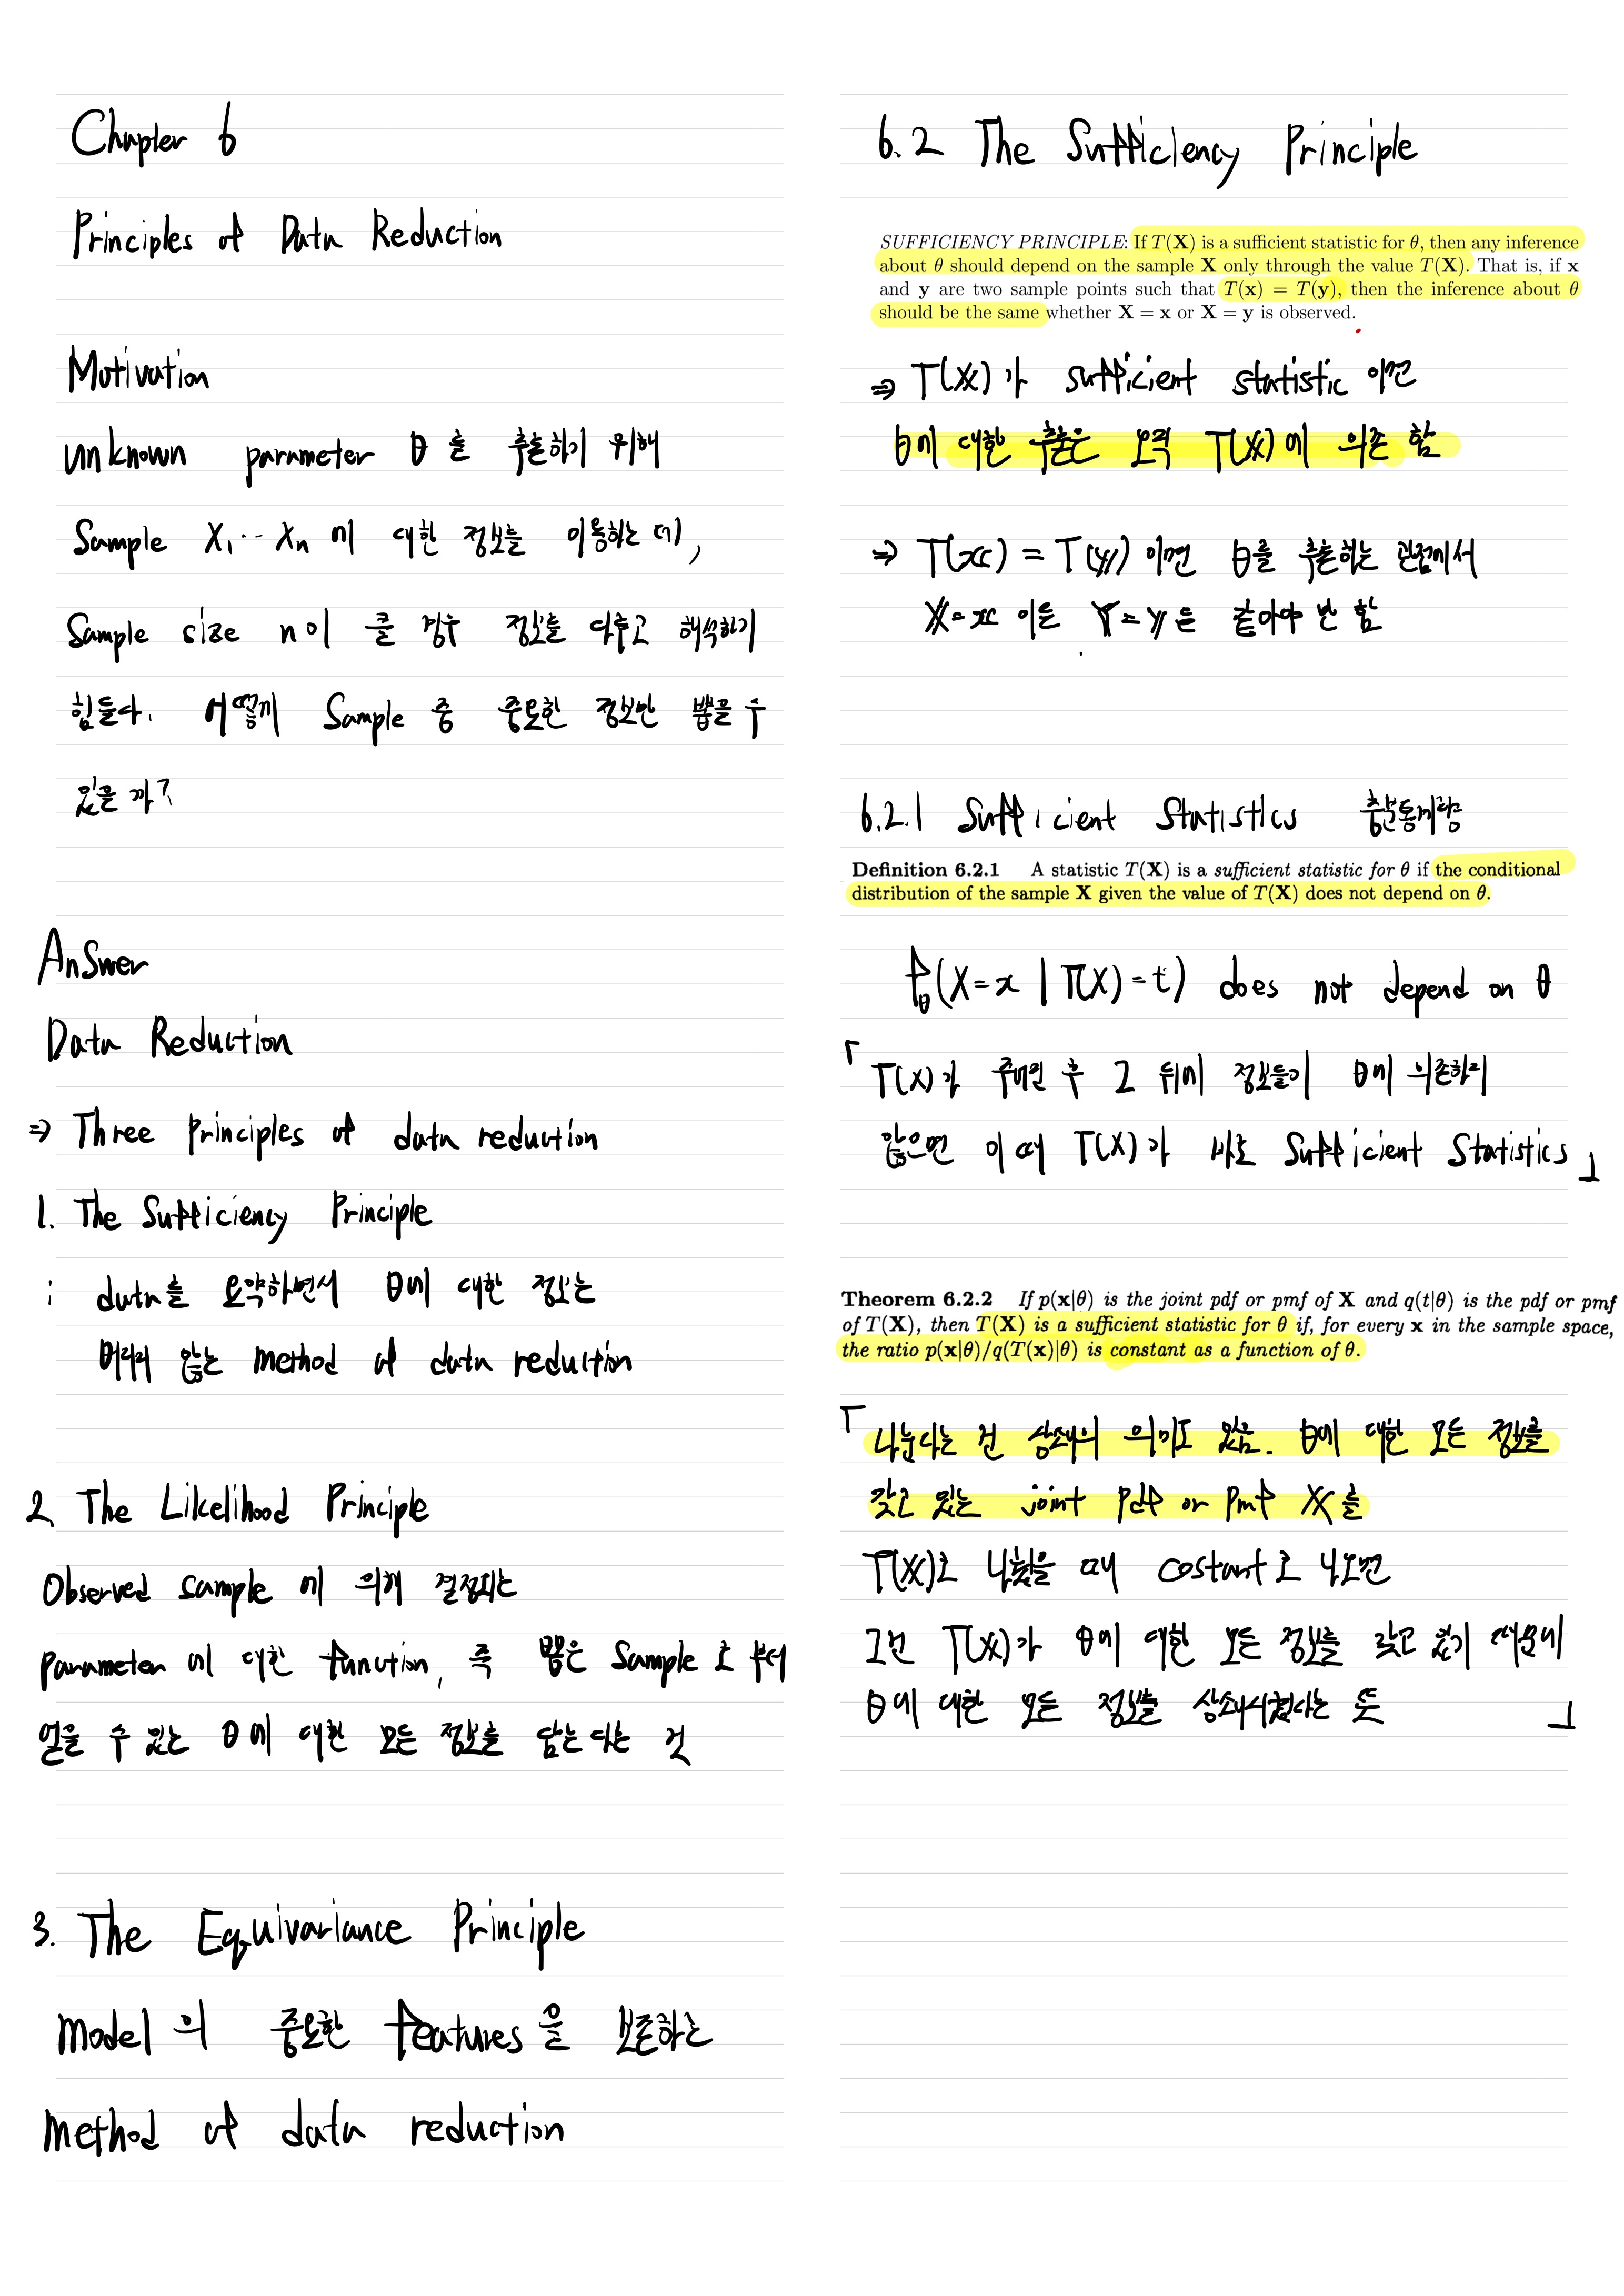 Chapter 6
Principles of Data Reduction
Motivation
unknown parameter θ를 추론하기 위해
Sample X₁ ‥ Xₙ 에 대한 정보를 이용하는데,
Sample size n이 클 경우 정보를 다루고 해석하기
힘들다. 어떻게 Sample 중 중요한 정보만 뽑을 수
있을까?
Answer
Data Reduction
⇒ Three principles of data reduction
1. The Sufficiency Principle
: data를 요약하면서 θ에 대한 정보는
버리지 않는 method of data reduction
2. The Likelihood Principle
Observed sample에 의해 결정되는
parameter에 대한 function, 즉 뽑은 Sample로부터
얻을 수 있는 θ에 대한 모든 정보를 담는다는 것
3. The Equivariance Principle
model의 중요한 features을 보존하는
method of data reduction
6.2 The Sufficiency Principle
SUFFICIENCY PRINCIPLE: If T(X) is a sufficient statistic for θ, then any inference
about θ should depend on the sample X only through the value T(X). That is, if x
and y are two sample points such that T(x) = T(y), then the inference about θ
should be the same whether X = x or X = y is observed.
⇒ T(X)가 sufficient statistic 이면
θ에 대한 추론은 오직 T(X)에 의존함
⇒ T(x) = T(y) 이면 θ를 추론하는 관점에서
X=x 이든 Y=y든 같아야만 함
6.2.1 Sufficient Statistics 충분통계량
Definition 6.2.1 A statistic T(X) is a sufficient statistic for θ if the conditional
distribution of the sample X given the value of T(X) does not depend on θ.
P_θ(X=x | T(X)=t) does not depend on θ
「T(X)가 주어진 후 그 뒤에 정보들이 θ에 의존하지
않으면 이 때 T(X)가 바로 Sufficient Statistics」
Theorem 6.2.2 If p(x|θ) is the joint pdf or pmf of X and q(t|θ) is the pdf or pmf
of T(X), then T(X) is a sufficient statistic for θ if, for every x in the sample space,
the ratio p(x|θ)/q(T(x)|θ) is constant as a function of θ.
「나눈다는 건 상쇄의 의미도 있음. θ에 대한 모든 정보를
갖고 있는 joint pdf or pmf X를
T(X)로 나눴을 때 costant로 나오면
그건 T(X)가 θ에 대한 모든 정보를 갖고 있기 때문에
θ에 대한 모든 정보를 상쇄시켰다는 뜻」